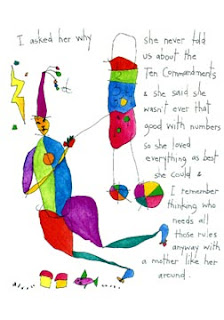 I asked her why
she never told
us about the
Ten Commandments
& she said she
wasn't ever that
good with numbers
so she loved
everything as best
she could &
I remember
thinking who
needs all
those rules
anyway with
a mother like her
around.